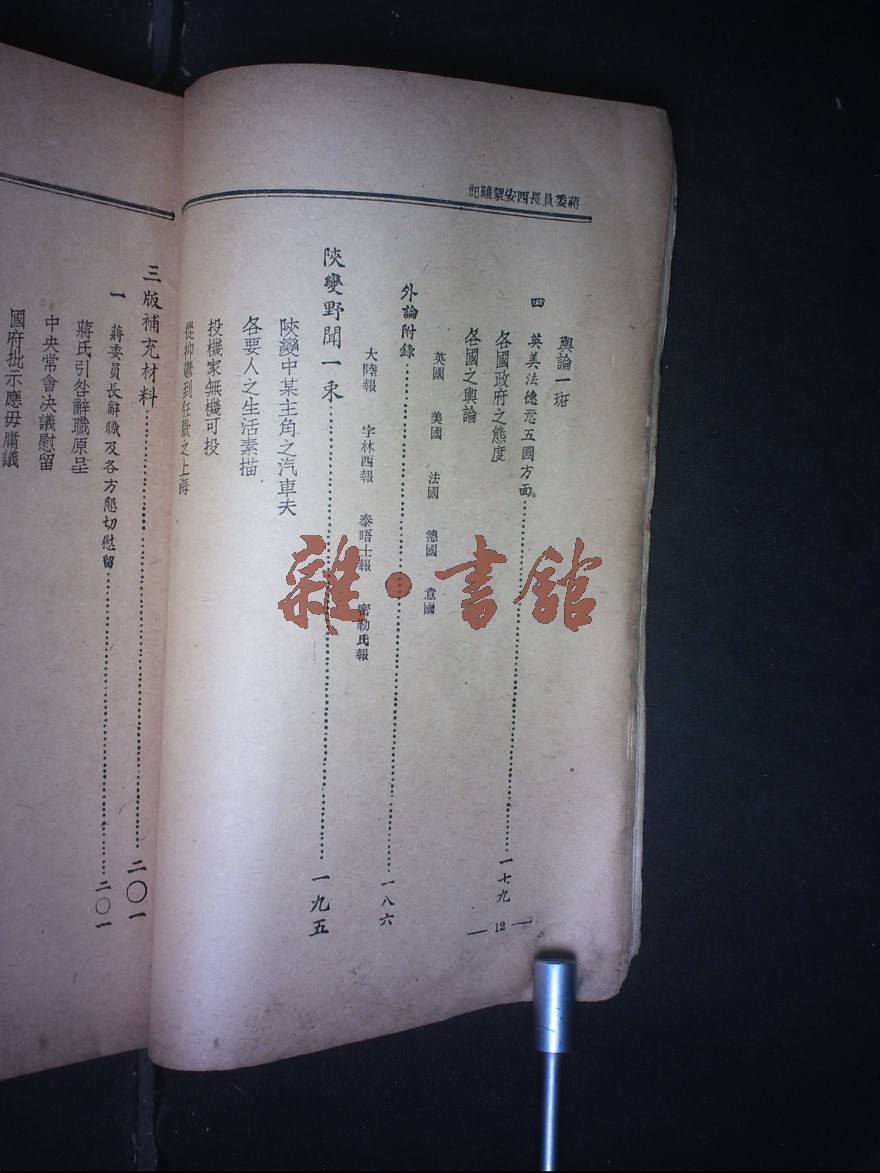 蔣委員長西安蒙難記
輿論一斑
四 英美法德意五國方面。……一七九
各國政府之態度
各國之輿論
英國 美國 法國 德國 意國
外論附錄……一八六
大陸報 字林西報 泰晤士報 密勒氏報
陝變野聞一束……一九五
陝變中某主角之汽車夫
各要人之生活素描
投機家無機可投
從抑鬱到狂歡之上海
— 12 —
三版補充材料……二〇一
一 蔣委員長辭職及各方懇切慰留……二〇一
蔣氏引咎辭職原呈
中央常會決議慰留
國府批示應毋庸議
雜·書館